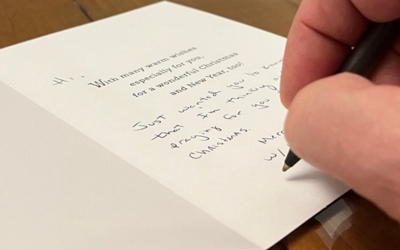 Hi.
With many warm wishes
especially for you,
for a wonderful Christmas
and New Year, too!
Just wanted you to
that I'm thinking
praying for you
Christmas.